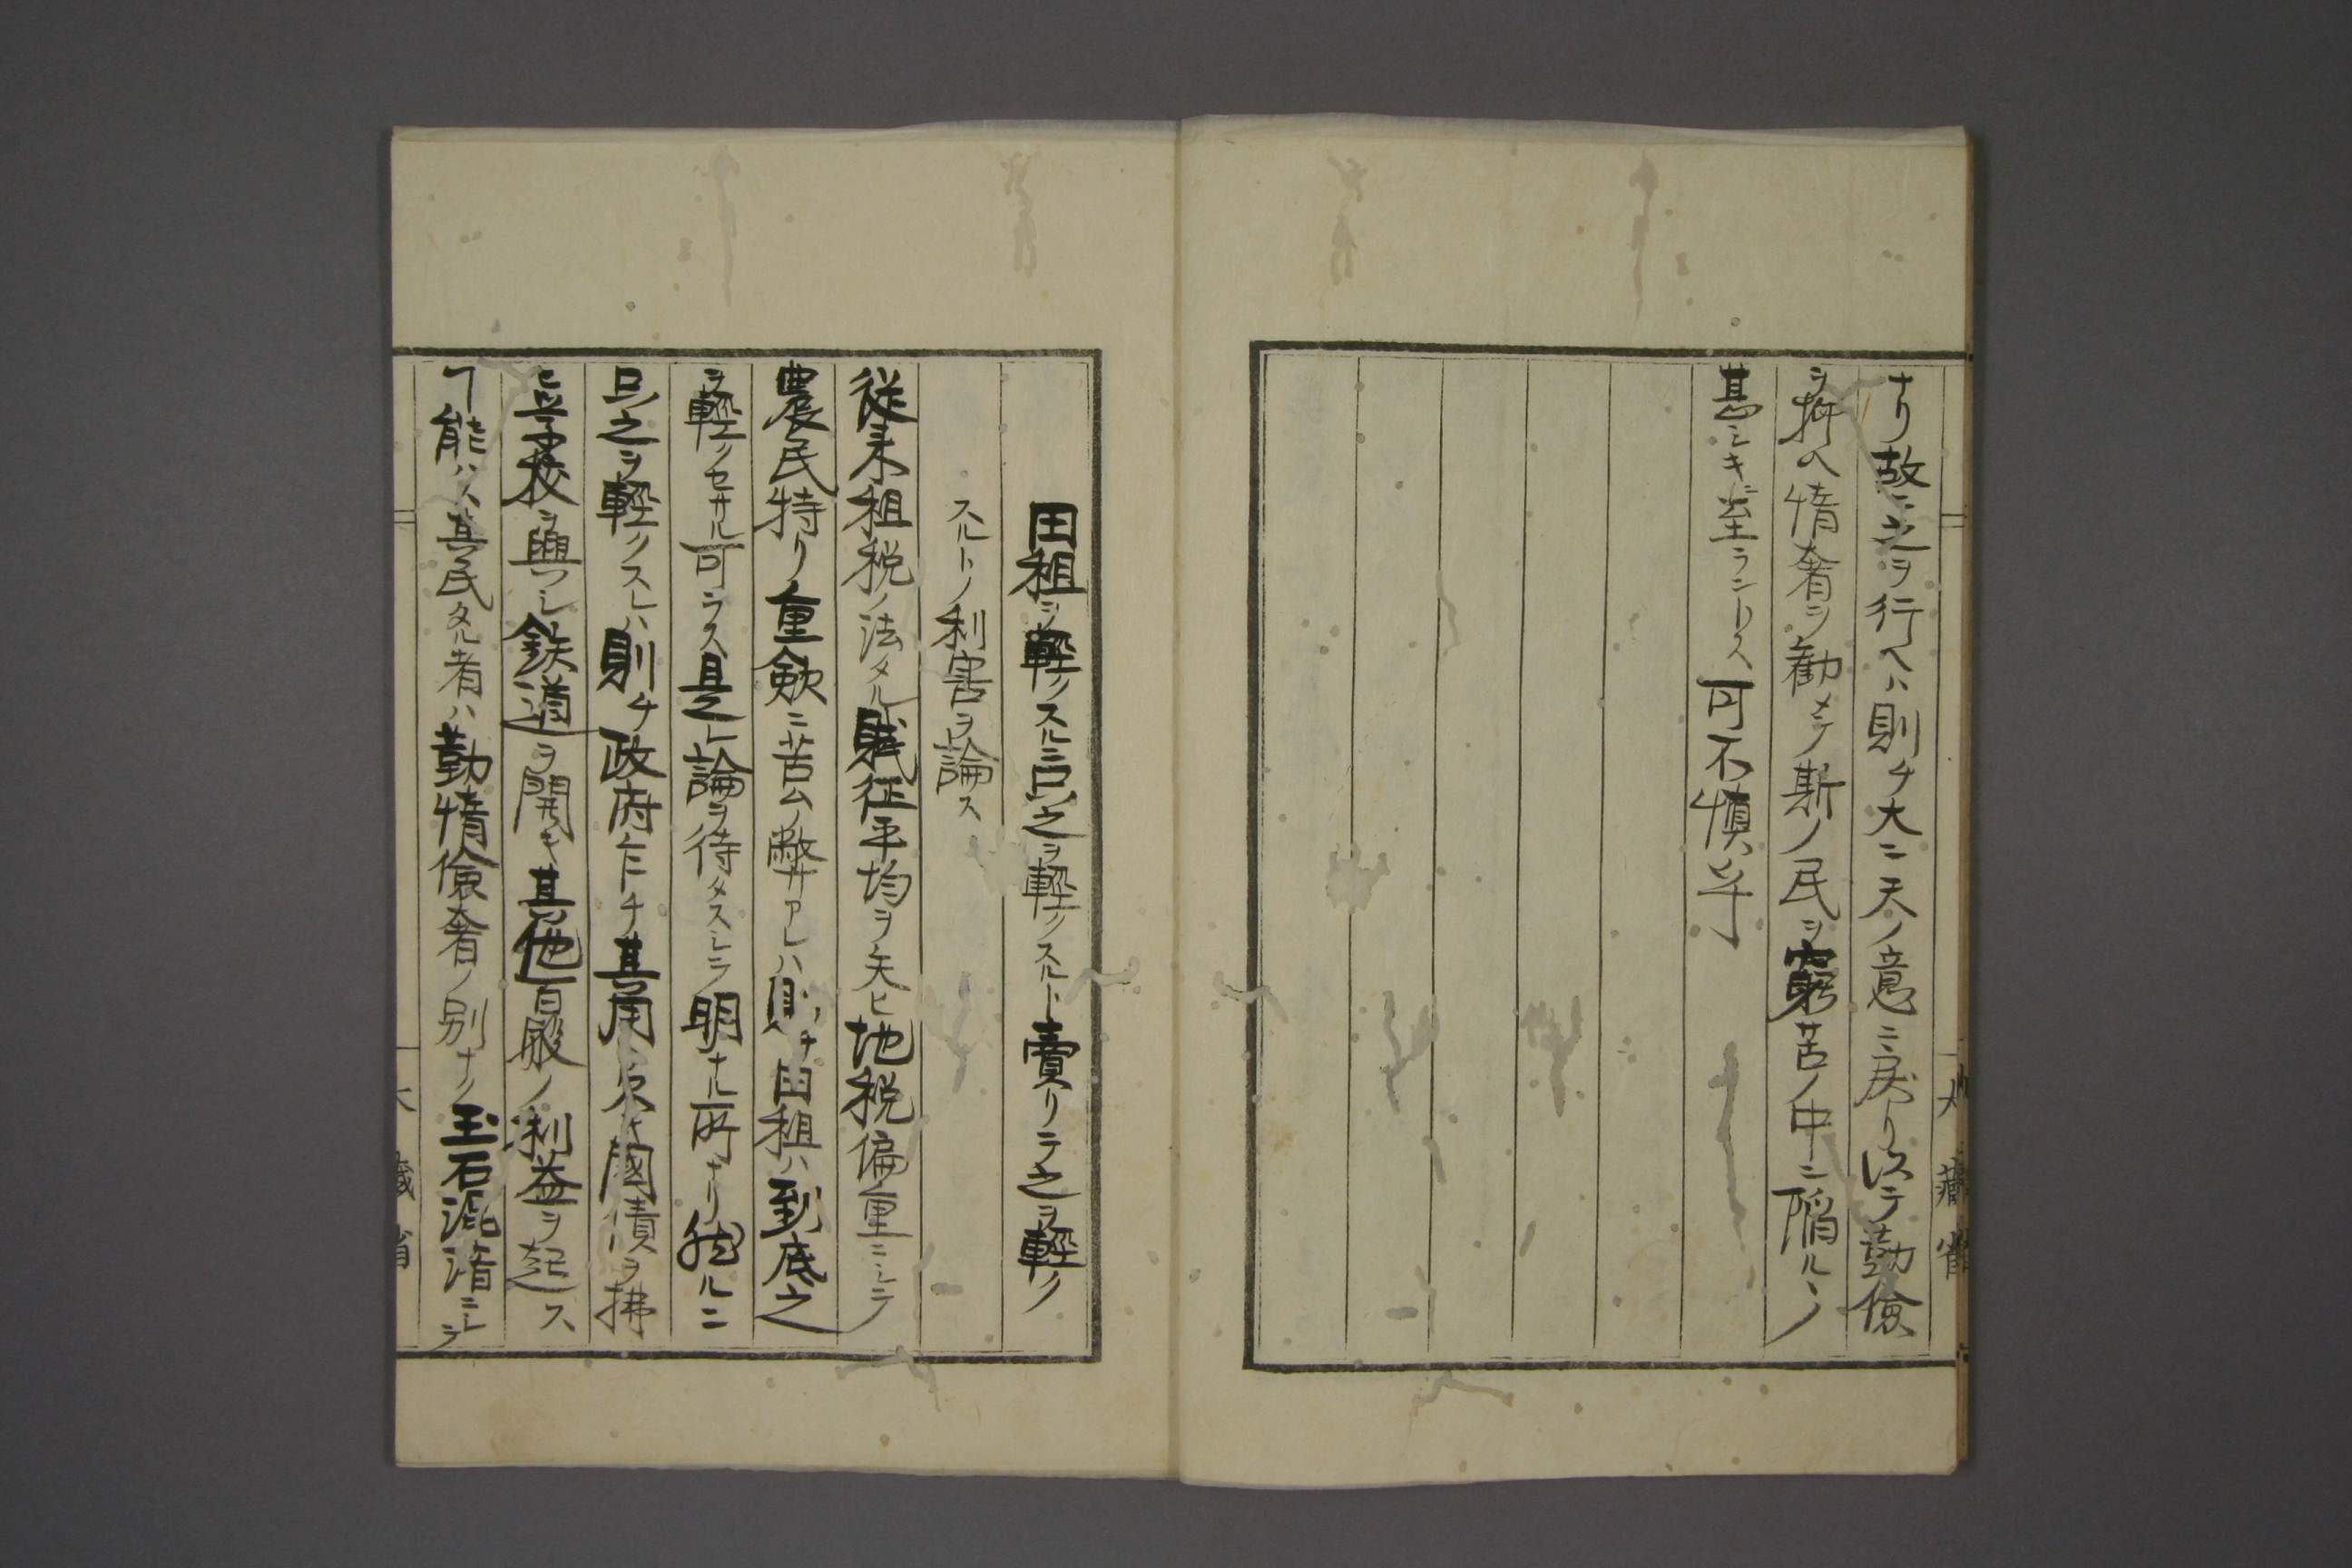 ナリ故ニ之ヲ行ヘハ則チ大ニ天ノ意ニ戻リ以テ勤儉
ヲ抑ヘ惰奢ヲ勧メテ斯ノ民ヲ窮苦ノ中ニ陥ルヽノ
甚シキニ至ラントス可不慎乎
大藏省
田租ヲ軽クスルニ只之ヲ軽クスルト賣リテ之ヲ軽ク
スルトノ利害ヲ論ス
従来租税ノ法タル賦征平均ヲ失ヒ地税偏重ニシテ
農民特リ重歛ニ苦ムノ弊アレハ則チ田租ハ到底之
ヲ軽クセサル可ラス是レ論ヲ待タスシテ明ナル所ナリ然ルニ
只之ヲ軽クスレハ則チ政府乍チ其用ニ乏ク國債ヲ拂
ヒ学校ヲ興シ鉄道ヲ開キ其他百般ノ利益ヲ起ス
ヿ能ハス其民タル者ハ勤惰儉奢ノ別ナク玉石混淆ニシテ
大藏省